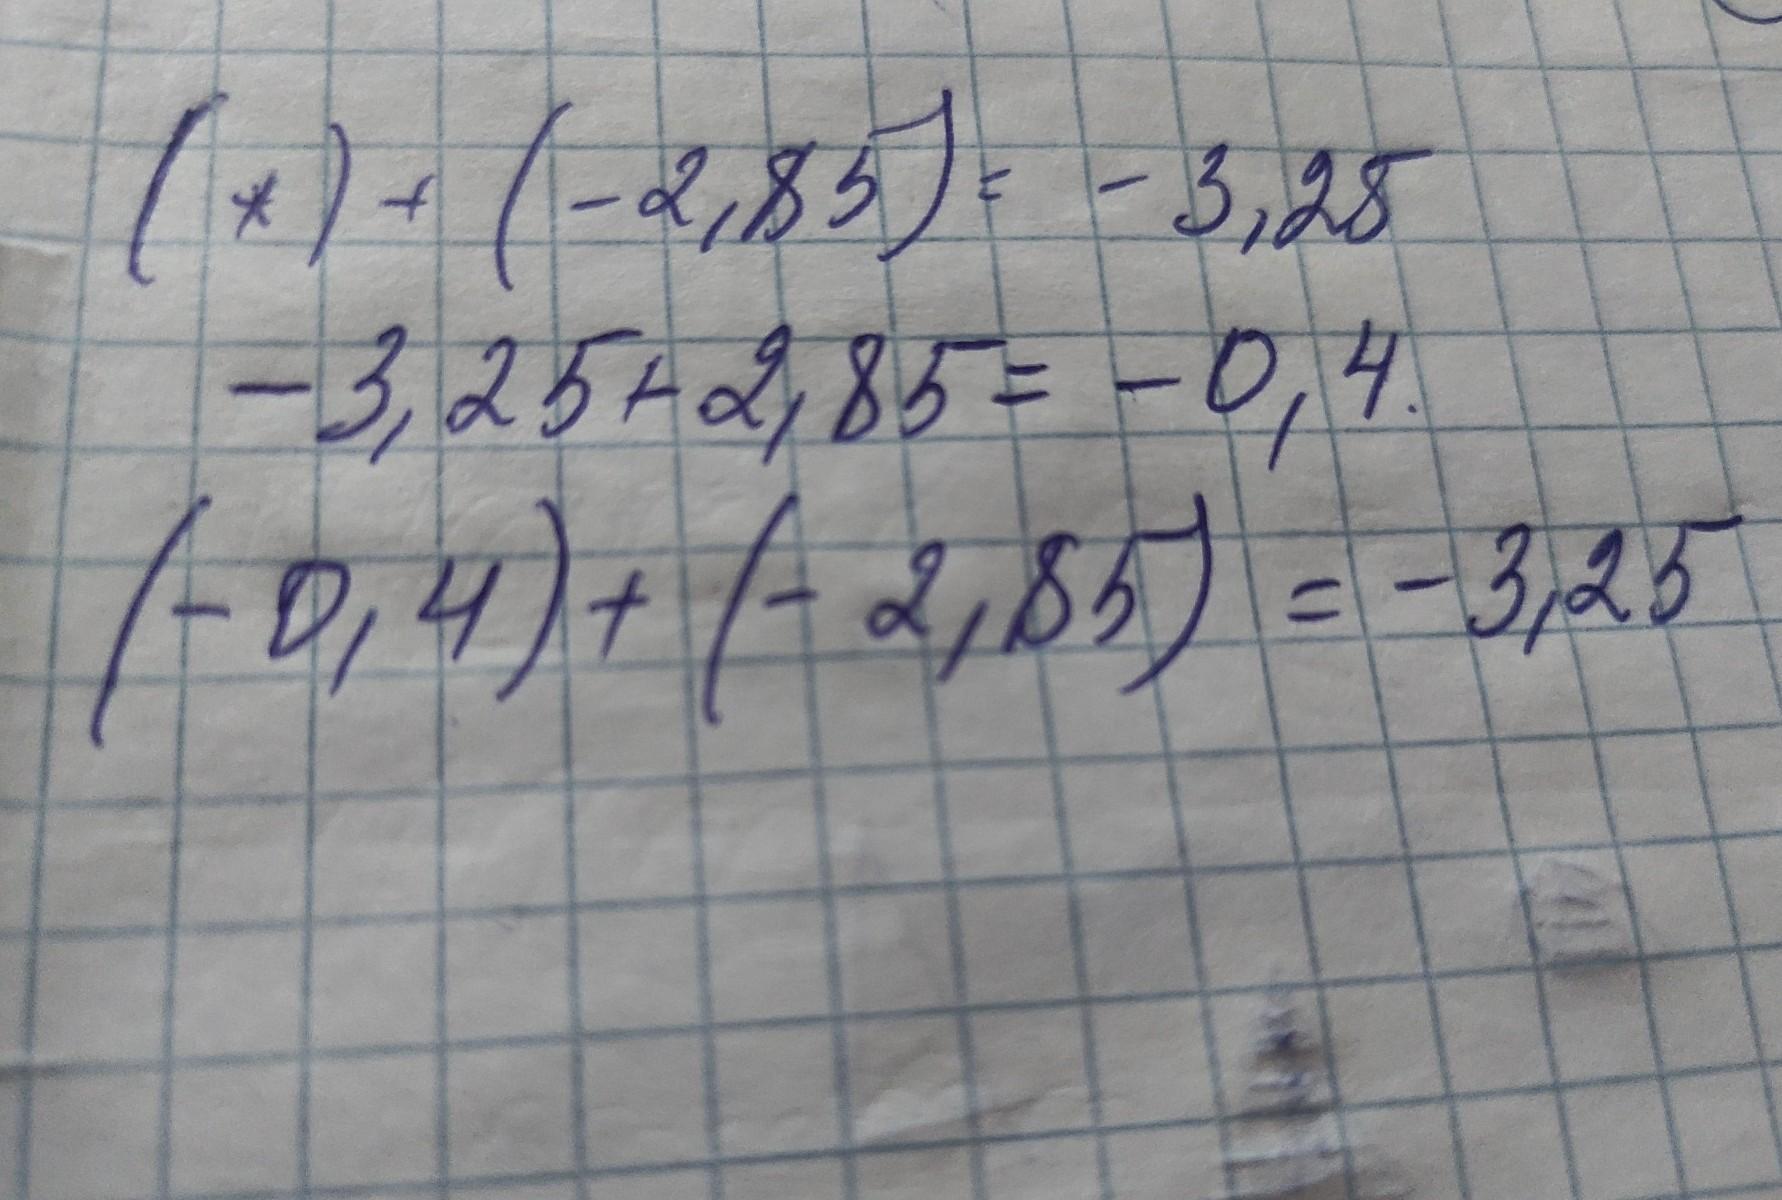 (*) + (-2,85) = -3,25
-3,25+2,85 = -0,4.
(-0,4)+(-2,85) = -3,25